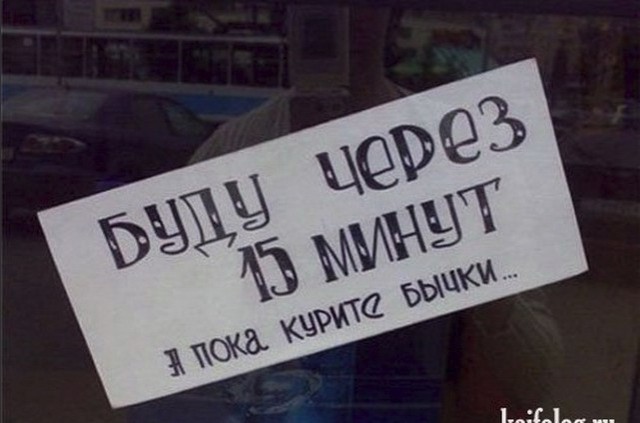 БУДУ ЧЕРЕЗ
15 МИНУТ
А ПОКА КУРИТЕ БЫЧКИ...
kaifolog.ru